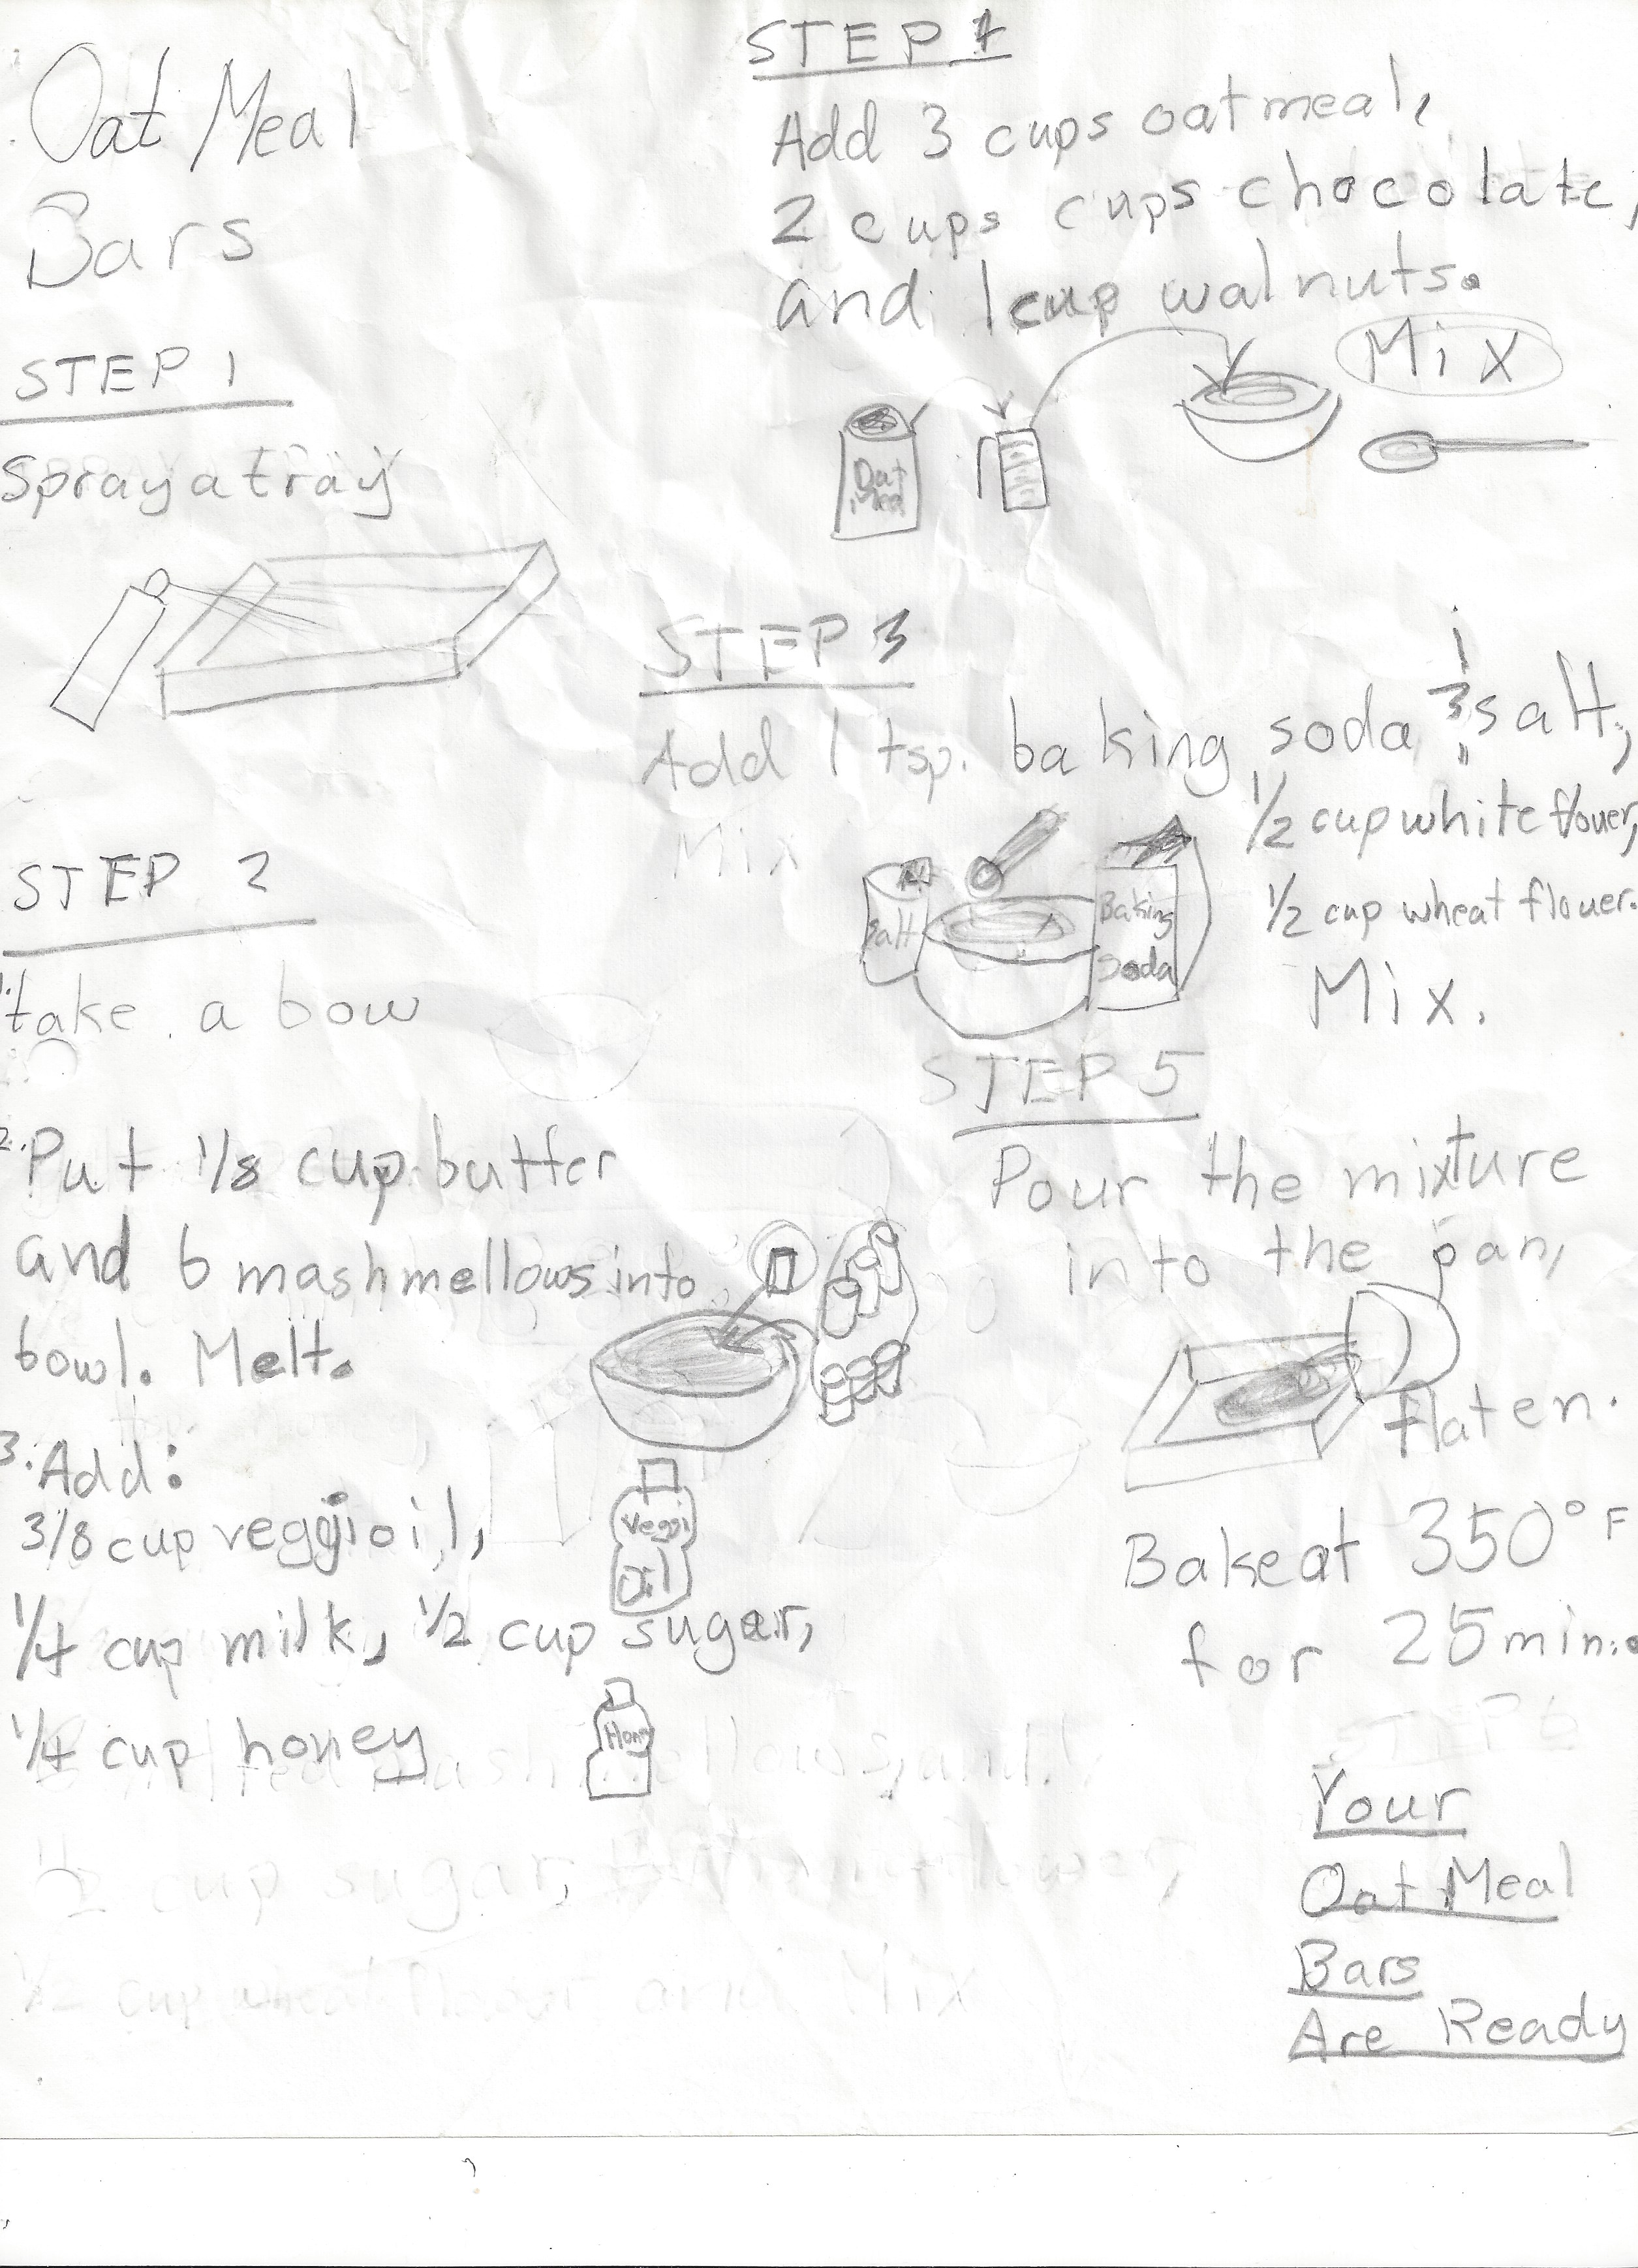 Oat Meal
Bars
STEP 1
Spray a tray
STEP 2
1. take a bow
2. Put 1/8 cup butter
and 6 mashmellows into
bowl. Melt.
3. Add:
3/8 cup veggioil,
Veggi
Oil
1/4 cup milk, 1/2 cup sugar,
1/4 cup honey
Hony
1/2 cup sugar,
1/2 cup wheat flower and Mix
STEP
Add 3 cups oatmeal,
2 cups cups chocolate,
and 1 cup walnuts.
Mix
Oat
Meal
STEP 3
Add 1 tsp. baking soda, salt,
1/2 cup white flouer,
1/2 cup wheat flouer.
Mix
Mix.
Salt
Baking
Soda
STEP 5
Pour the mixture
into the pan,
flaten.
Bake at 350° F
for 25 min.
STEP 6
Your
Oat Meal
Bars
Are Ready